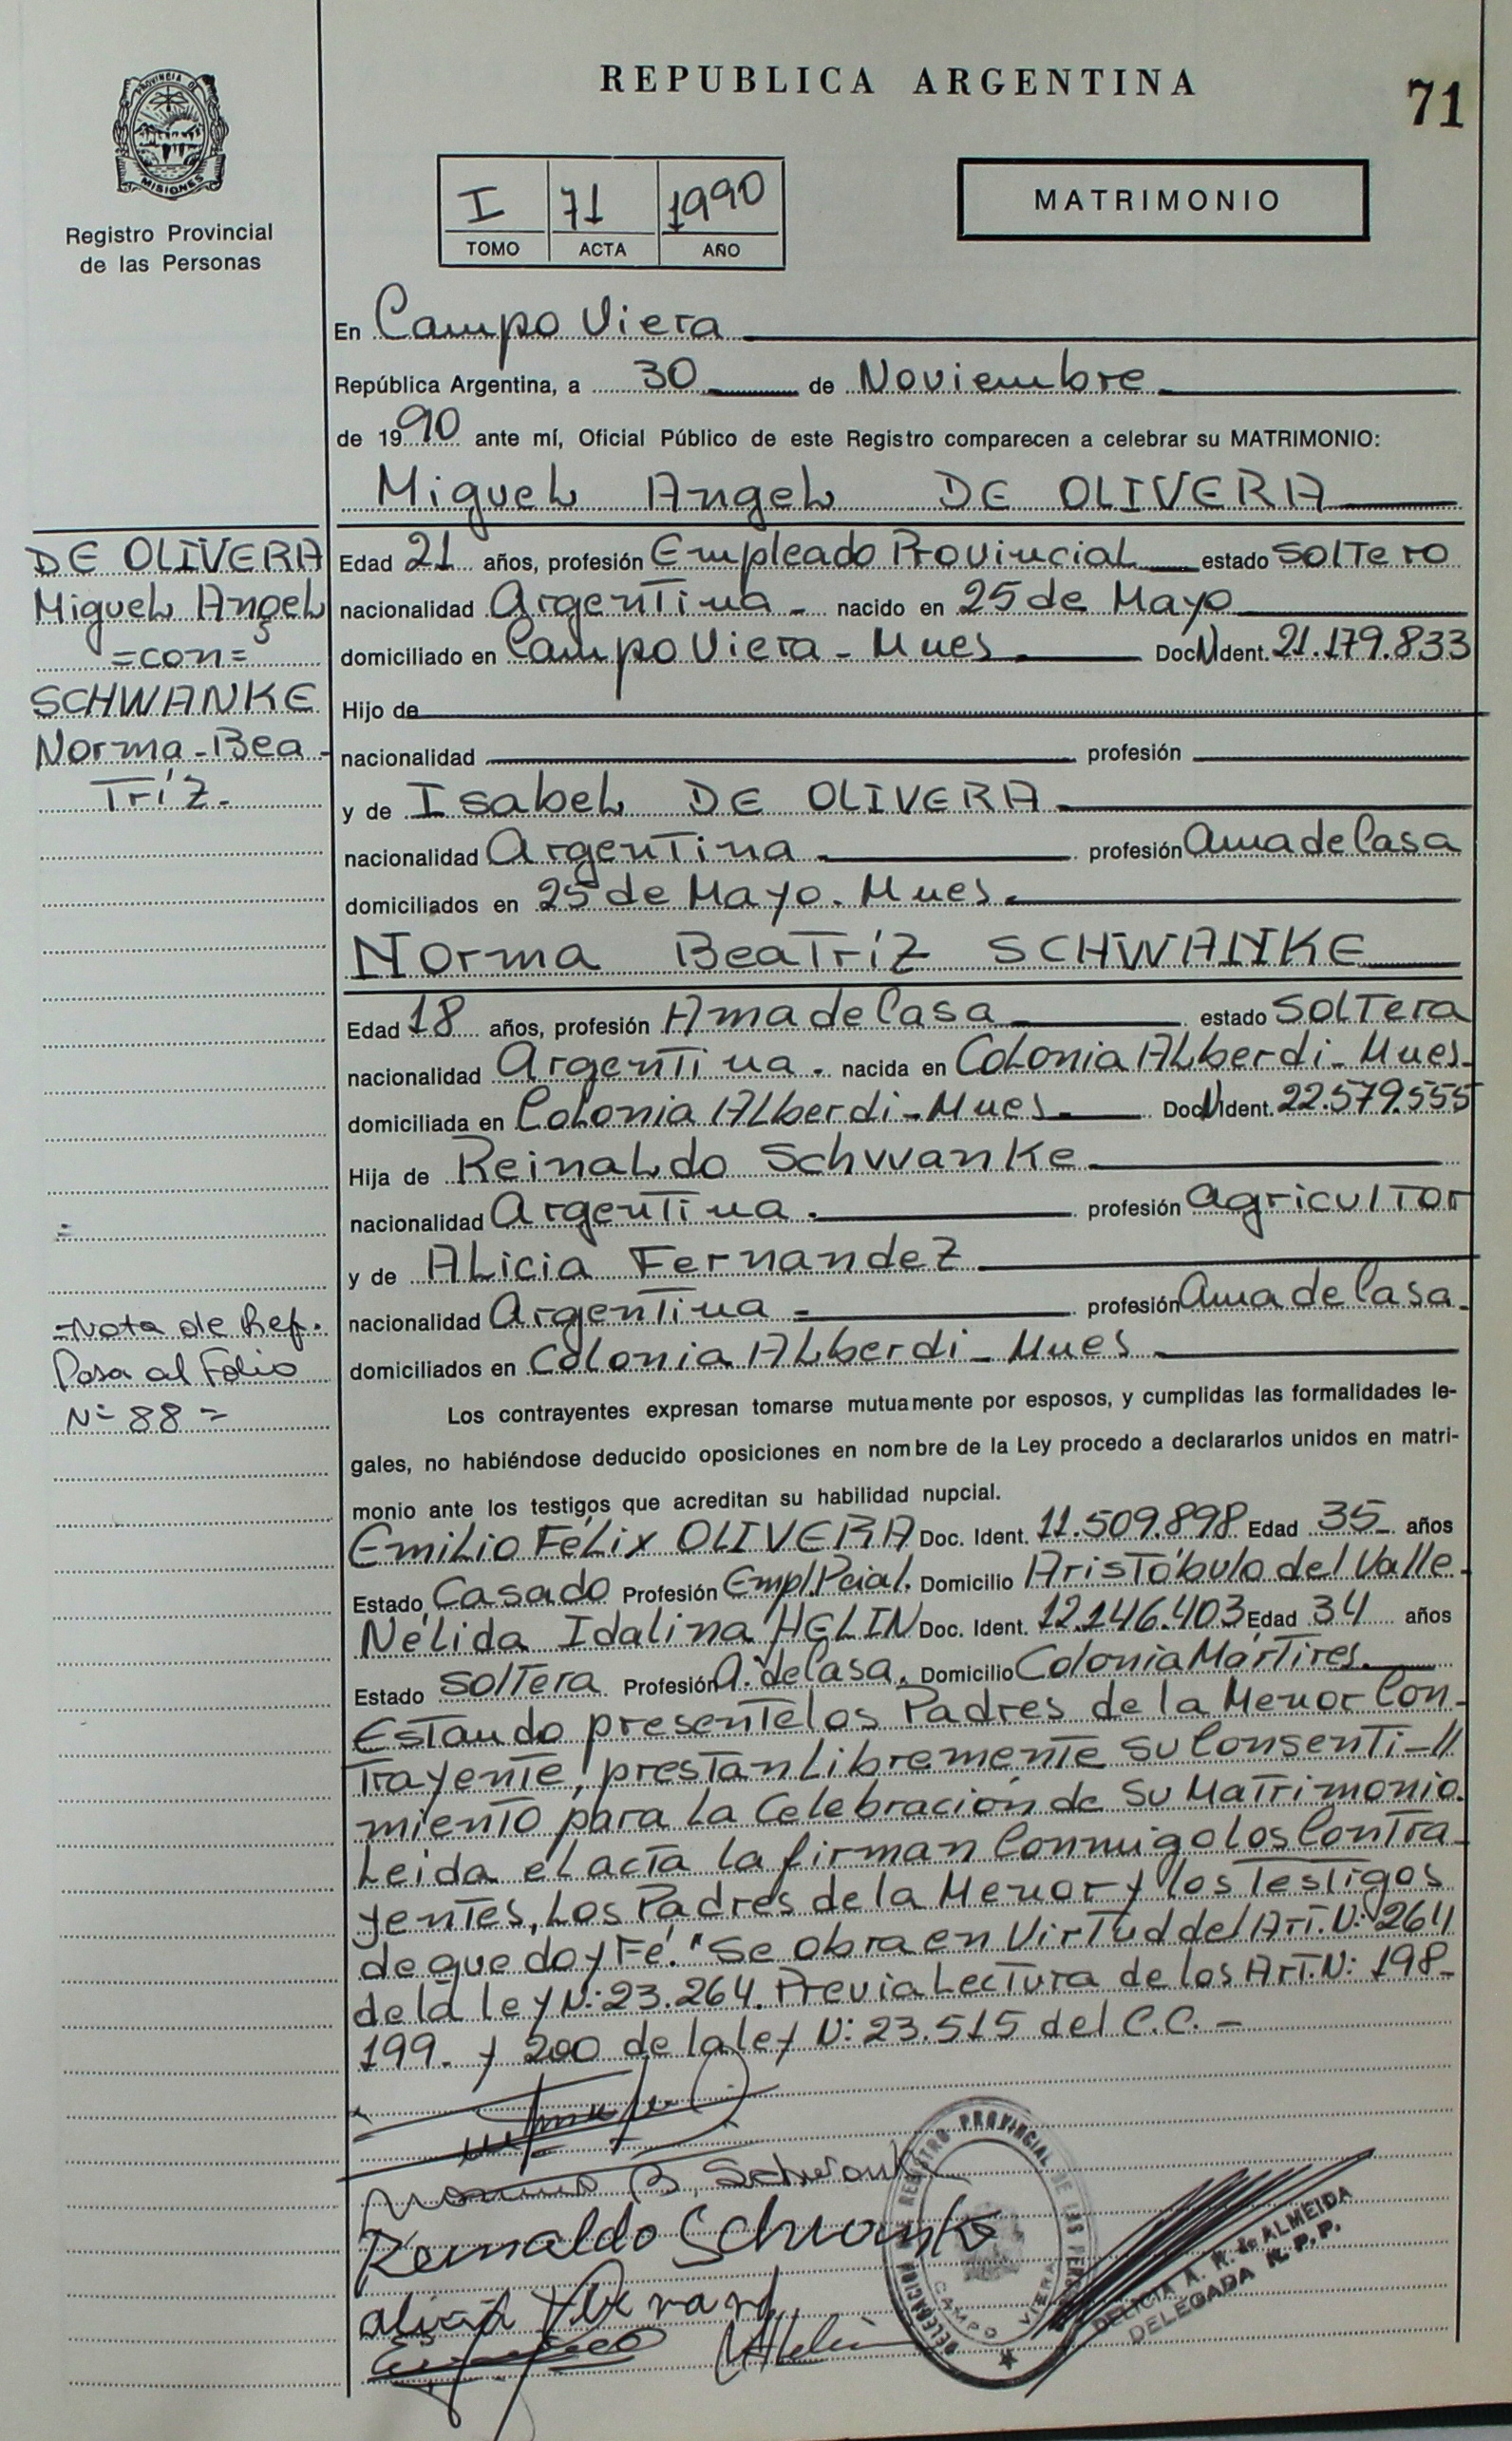 REPUBLICA ARGENTINA
71
PROVINCIA D
MISIONES
Registro Provincial
de las Personas
I 71 1990
TOMO ACTA AÑO
MATRIMONIO
En Campo Viera
República Argentina, a 30 de Noviembre
de 1990 ante mí, Oficial Público de este Registro comparecen a celebrar su MATRIMONIO:
Miguel Angel DE OLIVERA
DE OLIVERA
Miguel Angel
=con=
SCHWANKE
Norma-Bea-
Tríz.
Edad 21 años, profesión Empleado Provincial estado Soltero
nacionalidad Argentina - nacido en 25 de Mayo
domiciliado en Campo Viera - Mnes. Doc N Ident. 21.179.833
Hijo de
nacionalidad profesión
y de Isabel DE OLIVERA
nacionalidad Argentina profesión Ama de Casa
domiciliados en 25 de Mayo. Mnes.
Norma Beatríz SCHWANKE
Edad 18 años, profesión Ama de Casa estado Soltera
nacionalidad Argentina. nacida en Colonia Alberdi - Mnes.
domiciliada en Colonia Alberdi - Mnes. Doc N Ident. 22.579.555
Hija de Reinaldo Schwanke
nacionalidad Argentina. profesión agricultor
y de Alicia Fernandez
nacionalidad Argentina profesión Ama de Casa.
domiciliados en Colonia Alberdi - Mnes
-Nota de Ref.
Pasa al Folio
Nº 88 =
Los contrayentes expresan tomarse mutuamente por esposos, y cumplidas las formalidades le-
gales, no habiéndose deducido oposiciones en nombre de la Ley procedo a declararlos unidos en matri-
monio ante los testigos que acreditan su habilidad nupcial.
Emilio Félix OLIVERA Doc. Ident. 11.509.898 Edad 35 años
Estado Casado Profesión Empl. Pcial. Domicilio Aristóbulo del Valle.
Nélida Idalina HELIN Doc. Ident. 12.146.403 Edad 34 años
Estado Soltera Profesión A. de Casa. Domicilio Colonia Mártires.
Estando presente los Padres de la Menor Con-
trayente, prestan libremente su Consenti-//
miento para la Celebración de su Matrimonio.
Leida el acta la firman Conmigo los Contra-
yentes, Los Padres de la Menor y los Testigos
de que doy Fé. "Se obra en Virtud del Art. N: 264
de la ley N: 23.264. Previa Lectura de los Art. N: 198-
199. y 200 de la ley N: 23.515 del C.C. -
Norma B. Schwanke
Reinaldo Schwanke
DELEGACION REGISTRO PROVINCIAL DE LAS PERS
CAMPO VIERA
DELICIA A. R. de ALMEIDA
DELEGADA R.P.P.